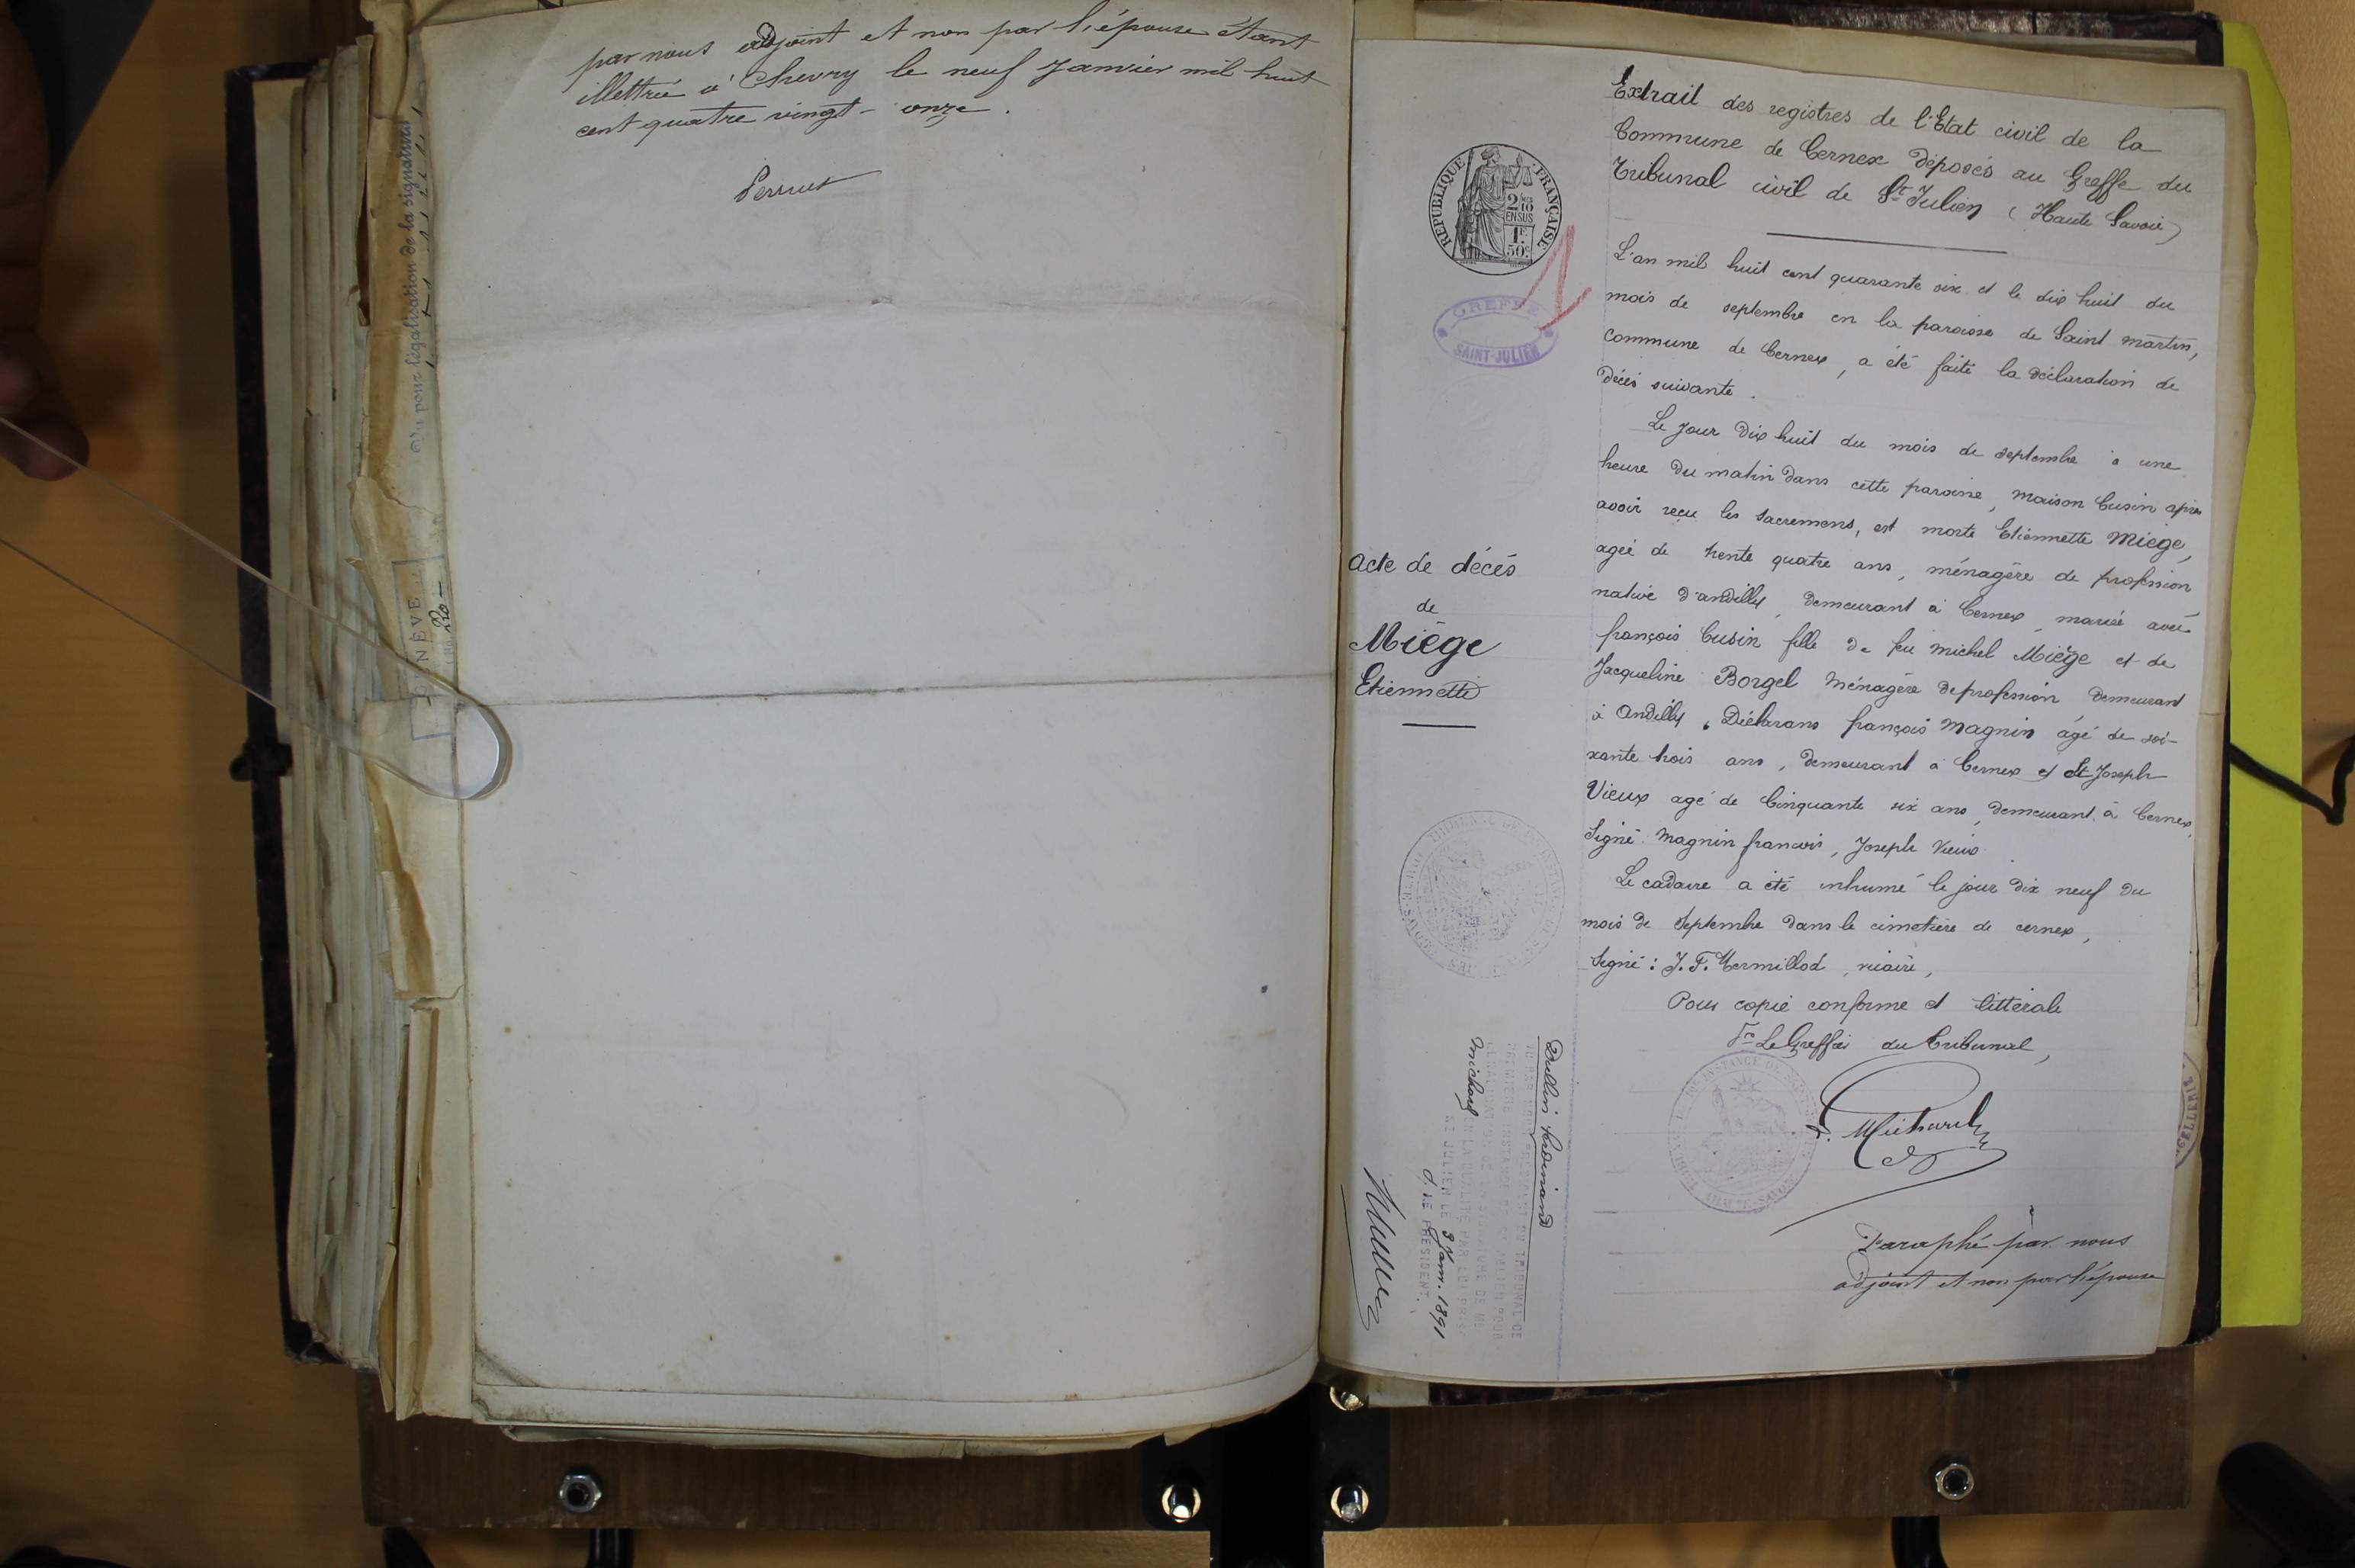 par nous adjoint et non par l'épouse étant
illettrée à Chevry le neuf Janvier mil huit
cent quatre vingt-onze.
Perrus
Vu pour légalisation de la signature
GENÈVE
20 —
RÉPUBLIQUE FRANÇAISE
2/10
EN SUS
1F
50c
GREFFE
SAINT-JULIEN
1
Extrait des registres de l'État civil de la
Commune de Cernex déposés au Greffe du
Tribunal civil de St Julien (Haute Savoie)
L'an mil huit cent quarante six et le dix huit du
mois de septembre en la paroisse de Saint martin,
commune de Cernex, a été faite la déclaration de
décès suivante.
Le jour dix huit du mois de septembre à une
heure du matin dans cette paroisse, maison Cusin après
avoir reçu les sacremens, est morte Etiennette Miège,
agée de trente quatre ans, ménagère de profession
native d'andilly, demeurant à Cernex, mariée avec
françois Cusin fille de feu michel Miège et de
Jacqueline Borgel ménagère de profession demeurant
à Andilly. Déclarans françois Magnin âgé de soi-
xante trois ans, demeurant à Cernex et St Joseph
Vieux agé de Cinquante six ans, demeurant à Cernex,
Signé Magnin francois, Joseph Vieux
Le cadavre a été inhumé le jour dix neuf du
mois de Septembre dans le cimetière de cernex,
Signé: J. F. Mermillod, vicaire,
Pour copie conforme et littérale
Le Greffier du Tribunal,
Michard
Paraphé par nous
adjoint et non par l'épouse
Acte de décès
de
Miège
Etiennette
Dullin ferdinand
DU TRIBUNAL DE
PREMIÈRE INSTANCE DE ST JULIEN POUR
Michard
ST JULIEN LE 3 Janv. 1891
P. LE PRÉSIDENT,